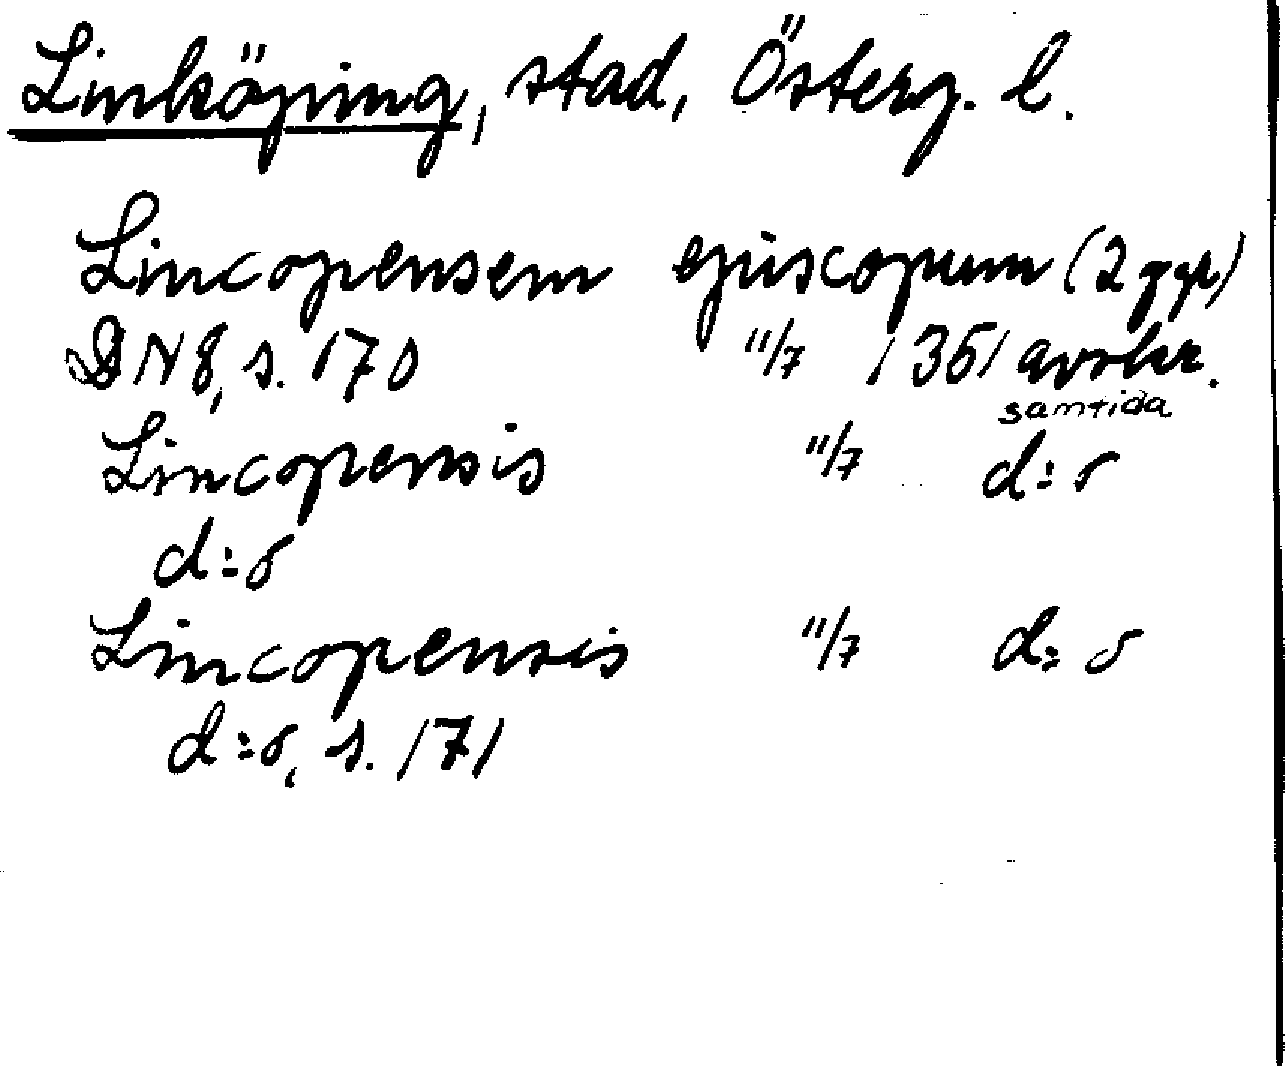 Linköping, stad, Österg. l.
Lincopensem episcopum (2 ggr)
DN 8, s. 170 11/7 1351 avskr.
samtida
Lincopensis 11/7 d:o
d:o
Lincopensis 11/7 d:o
d:o, s. 171